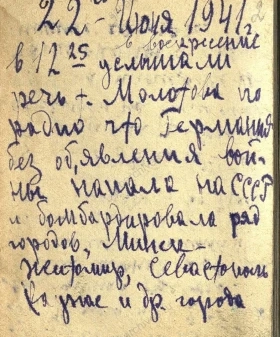 22 - Июня 1941 г
в воскресение
в 12 25 услышали
речь т. Молотова по
радио что Германия
без об,явления вой-
ны напала на СССР
и бомбардировала ряд
городов, Минск -
Житомир, Севастополь
Каунас и др. города